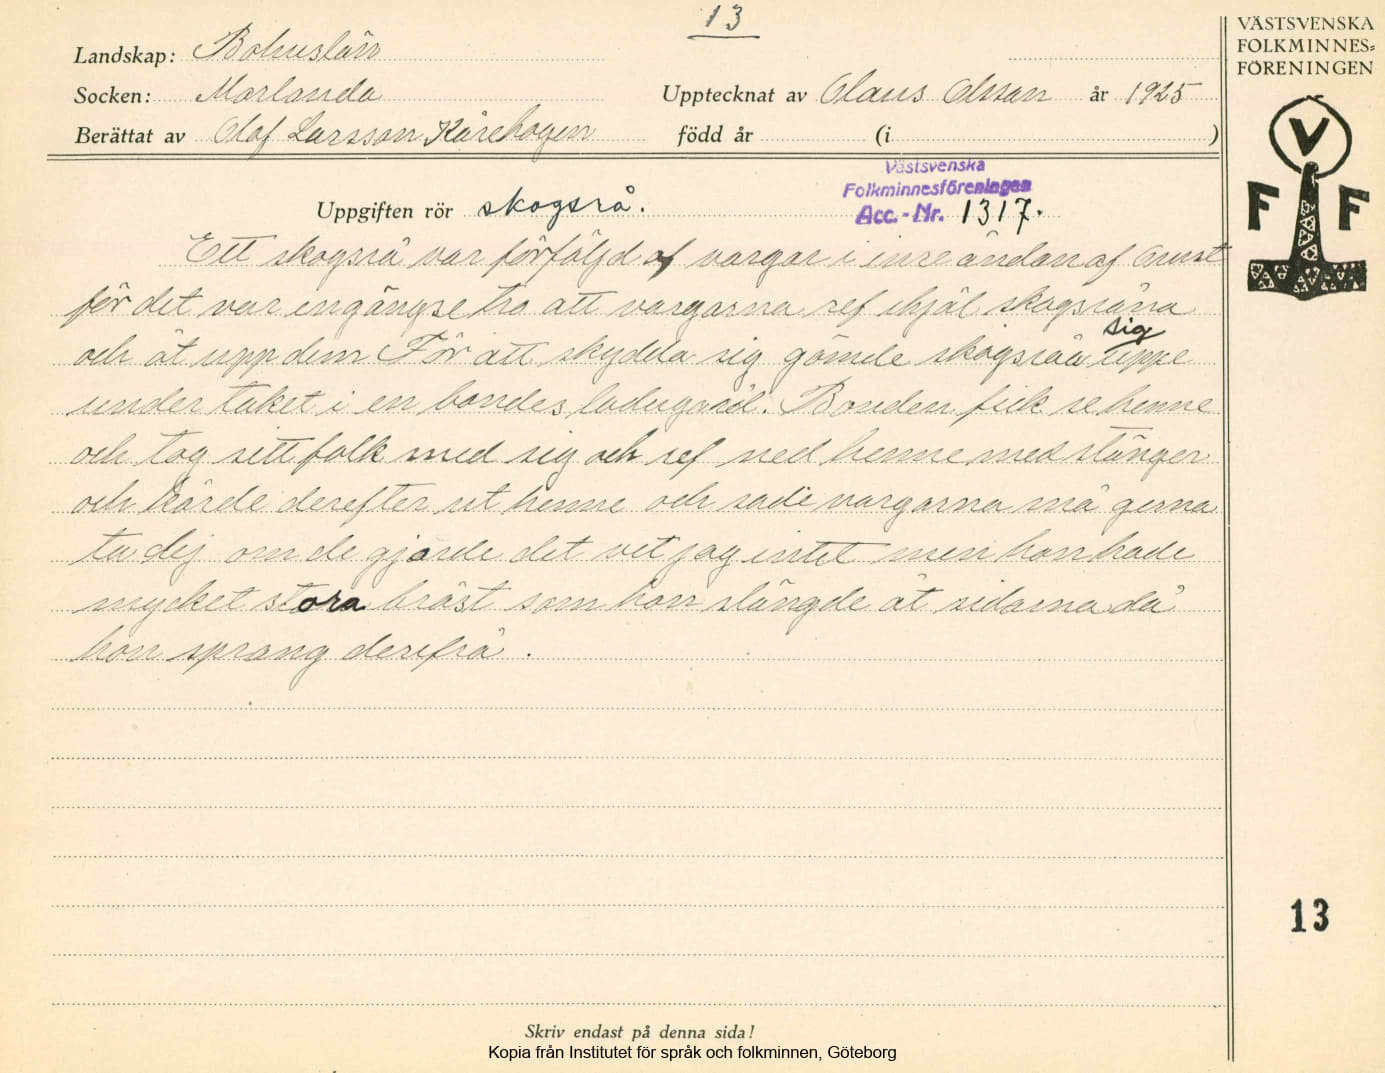 13
VÄSTSVENSKA
FOLKMINNES=
FÖRENINGEN
Landskap: Bohuslän
Socken: Morlanda Upptecknat av Olaus Olsson år 1925
Berättat av Olaf Larsson Kårehogen född år (i )
Västsvenska
Folkminnesföreningen
Uppgiften rör skogsrå. Acc.-Nr. 1317.
V
F F
Ett skogsrå var förföljd af vargar i inre ändan af Orust
för det var engångse tro att vargarna ref ihjäl skogsråna
och åt upp dem För att skydda sig gömde skogsråa sig uppe
under taket i en bondes ladugård. Bonden fick se henne
och tog sitt folk med sig och ref ned henne med stänger
och körde derefter ut henne och sade vargarna må gerna
ta dej om de gjorde det vet jag intet men hon hade
mycket stora bröst som hon slängde åt sidorna då
hon sprang derifrå.
13
Skriv endast på denna sida!
Kopia från Institutet för språk och folkminnen, Göteborg